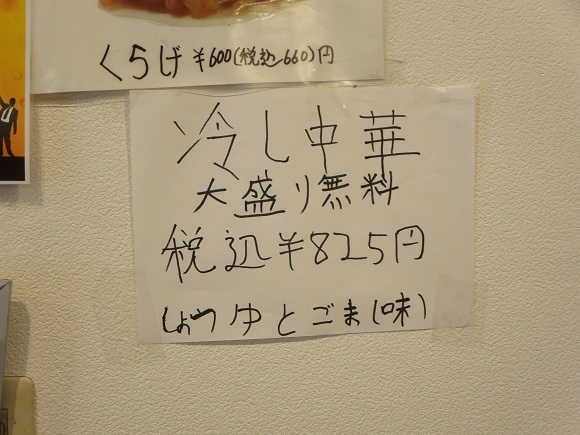 くらげ ¥600(税込660)円
冷し中華
大盛り無料
税込¥825円
しょうゆとごま(味)